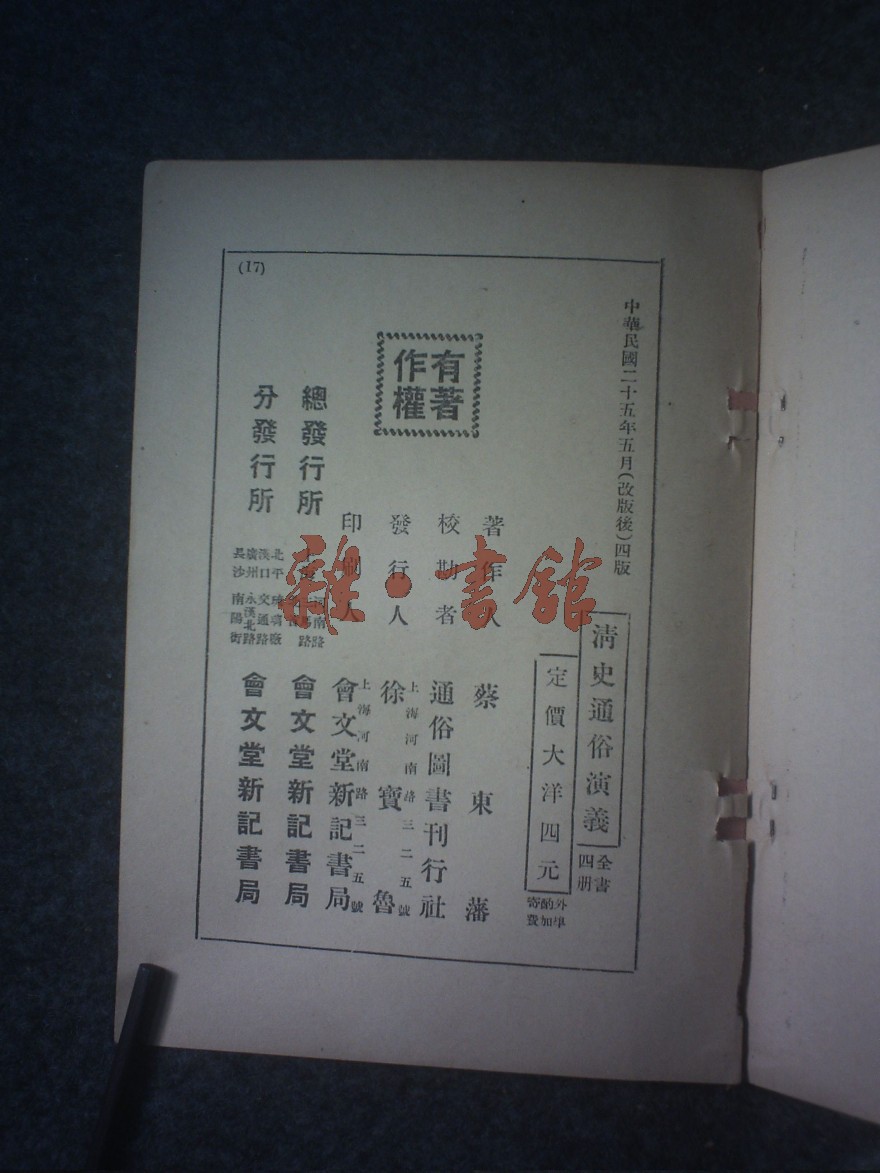 中華民國二十五年五月(改版後)四版
清史通俗演義
全書四册
定價大洋四元
外埠酌加寄費
著作人 蔡東藩
校勘者 通俗圖書刊行社
發行人 上海河南路三二五號 徐寶魯
印刷人 上海河南路三二五號 會文堂新記書局
總發行所 上海 河南路 會文堂新記書局
分發行所 北平 漢口 廣州 長沙 琉璃廠 交通路 永漢北路 南陽街 會文堂新記書局
有著作權
(17)
雜·書館